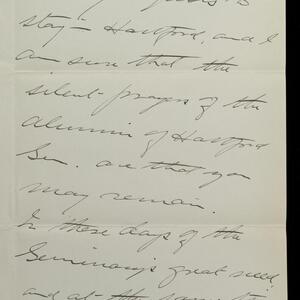 stay – Hartford, and I
am sure that the
silent – prayers of the
alumni of Hartford
Sem. are that you
may remain.
In these days of the
Seminary's great need,
and at the